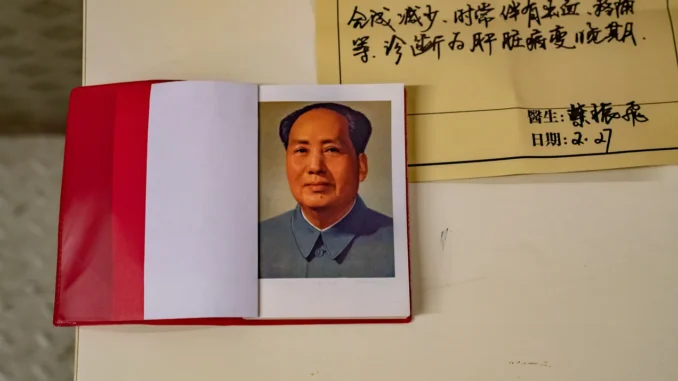 合成减少、时常伴有出血、移痛
等.诊断为肝脏病变晚期.
醫生:
日期:2.27